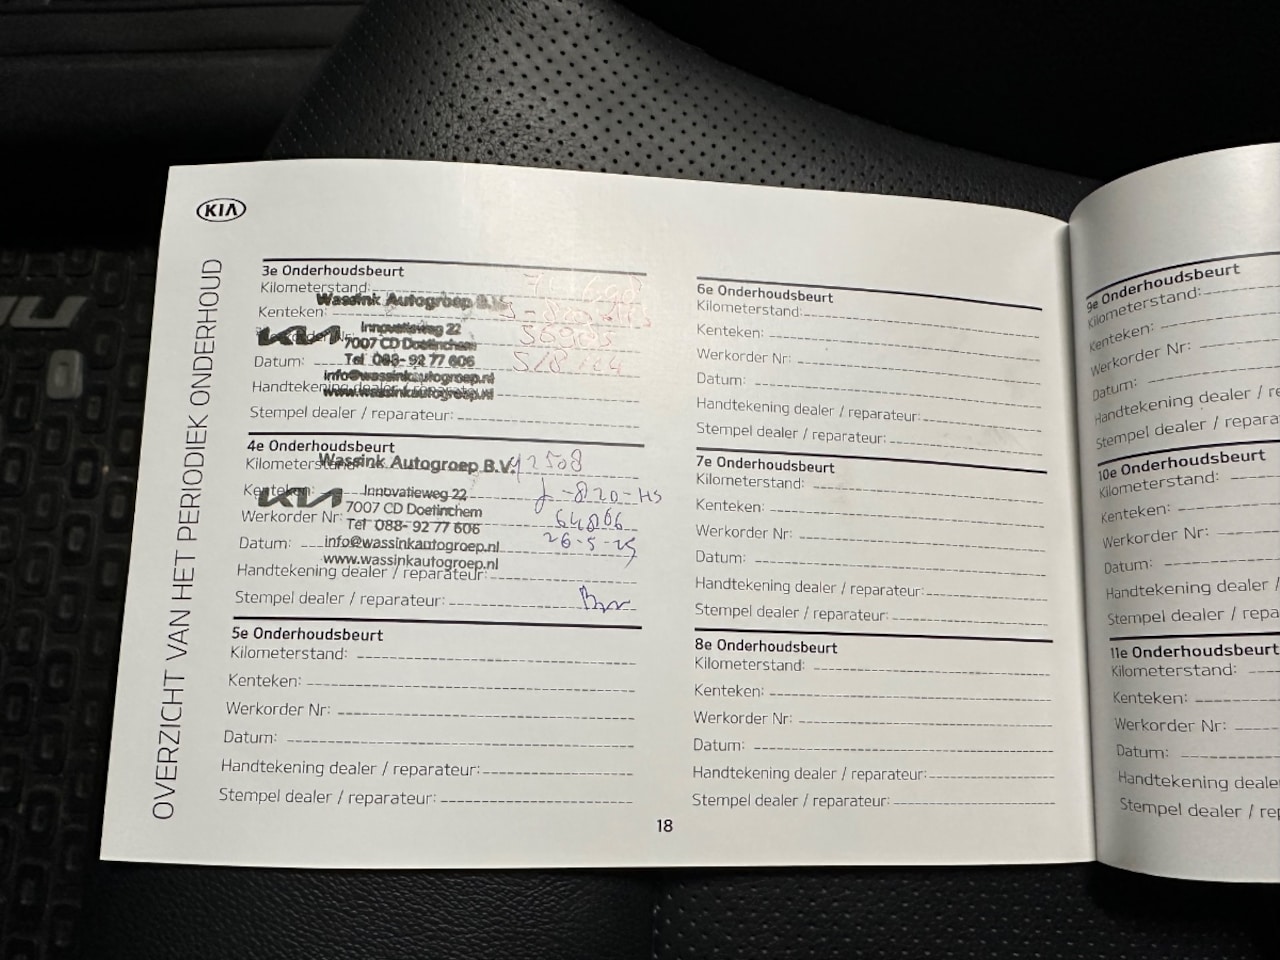 KIA
OVERZICHT VAN HET PERIODIEK ONDERHOUD
3e Onderhoudsbeurt
Kilometerstand:
Wassink Autogroep B.V.
Kenteken:
KIA Innovatieweg 22
7007 CD Doetinchem
56905
Datum:
Tel 088-92 77 606
5/8
info@wassinkautogroep.nl
Handtekening dealer / reparateur:
www.wassinkautogroep.nl
Stempel dealer / reparateur:
4e Onderhoudsbeurt
Kilometerstand:
Wassink Autogroep B.V. 92508
Kenteken: -820-HS
KIA Innovatieweg 22
7007 CD Doetinchem
Werkorder Nr: 64866
Tel 088-92 77 606
Datum: 26-5-25
info@wassinkautogroep.nl
www.wassinkautogroep.nl
Handtekening dealer / reparateur:
Stempel dealer / reparateur:
5e Onderhoudsbeurt
Kilometerstand:
Kenteken:
Werkorder Nr:
Datum:
Handtekening dealer / reparateur:
Stempel dealer / reparateur:
6e Onderhoudsbeurt
Kilometerstand:
Kenteken:
Werkorder Nr:
Datum:
Handtekening dealer / reparateur:
Stempel dealer / reparateur:
7e Onderhoudsbeurt
Kilometerstand:
Kenteken:
Werkorder Nr:
Datum:
Handtekening dealer / reparateur:
Stempel dealer / reparateur:
8e Onderhoudsbeurt
Kilometerstand:
Kenteken:
Werkorder Nr:
Datum:
Handtekening dealer / reparateur:
Stempel dealer / reparateur:
18
9e Onderhoudsbeurt
Kilometerstand:
Kenteken:
Werkorder Nr:
Datum:
Handtekening dealer / re
Stempel dealer / repara
10e Onderhoudsbeurt
Kilometerstand:
Kenteken:
Werkorder Nr:
Datum:
Handtekening dealer /
Stempel dealer / repa
11e Onderhoudsbeurt
Kilometerstand:
Kenteken:
Werkorder Nr:
Datum:
Handtekening deale
Stempel dealer / rep